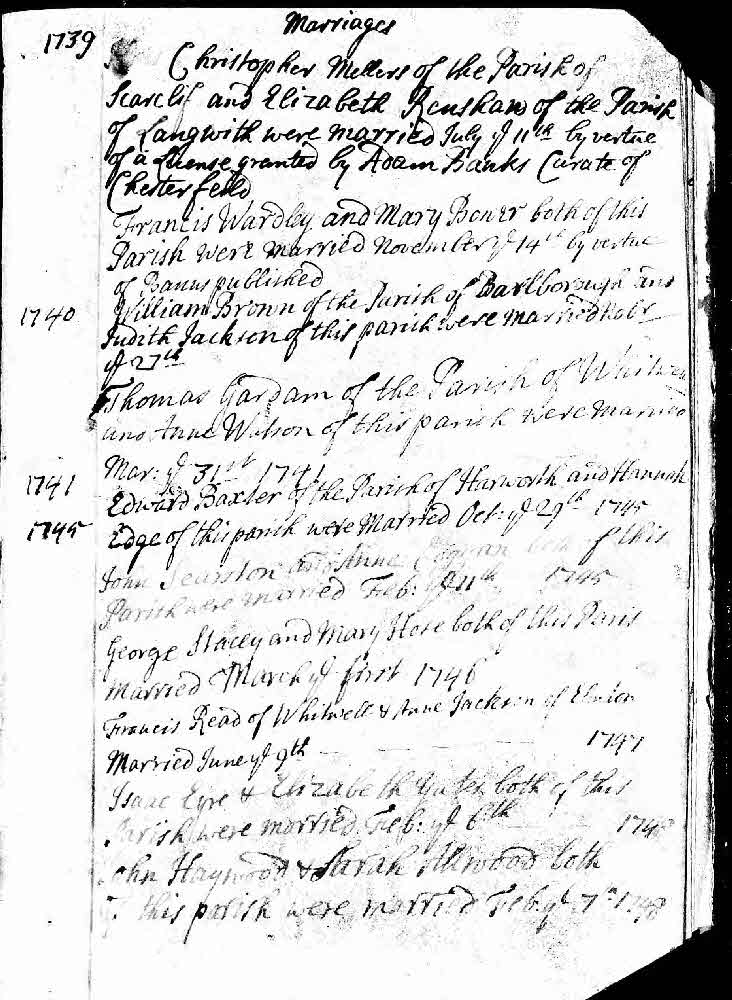 Marriages
1739
Christopher Mellers of the Parish of
Scarclif and Elizabeth Renshaw of the Parish
of Langwith were married July ye 11th by vertue
of a Lisense granted by Adam Banks Curate of
Chesterfeild
Francis Wardley and Mary Bower both of this
Parish were married November ye 14th by vertue
of Banns published
1740 William Brown of the Parish of Barlborough and
Judith Jackson of this parish were married
ye 27th
Thomas Gardam of the Parish of Whitwell
and Anne Wilson of this parish were Married
Mar: ye 31st 1741
1741 Edward Baxter of the Parish of Harworth and Hannah
1745 Edge of this parish were Married Oct: ye 29th 1745
John Searston and Anne both of this
Parish were married Feb: ye 11th 1745
George Stacey and Mary Hose both of this Paris
Married March ye first 1746
Francis Read of Whitwell & Anne Jackson of
Married June ye 9th 1747
Isaac Eyre & Elizabeth both of this
Parish were married Feb: ye 6th 1748
John Haywood & Sarah Allwood both
of this parish were married Feb: ye 7th 1748